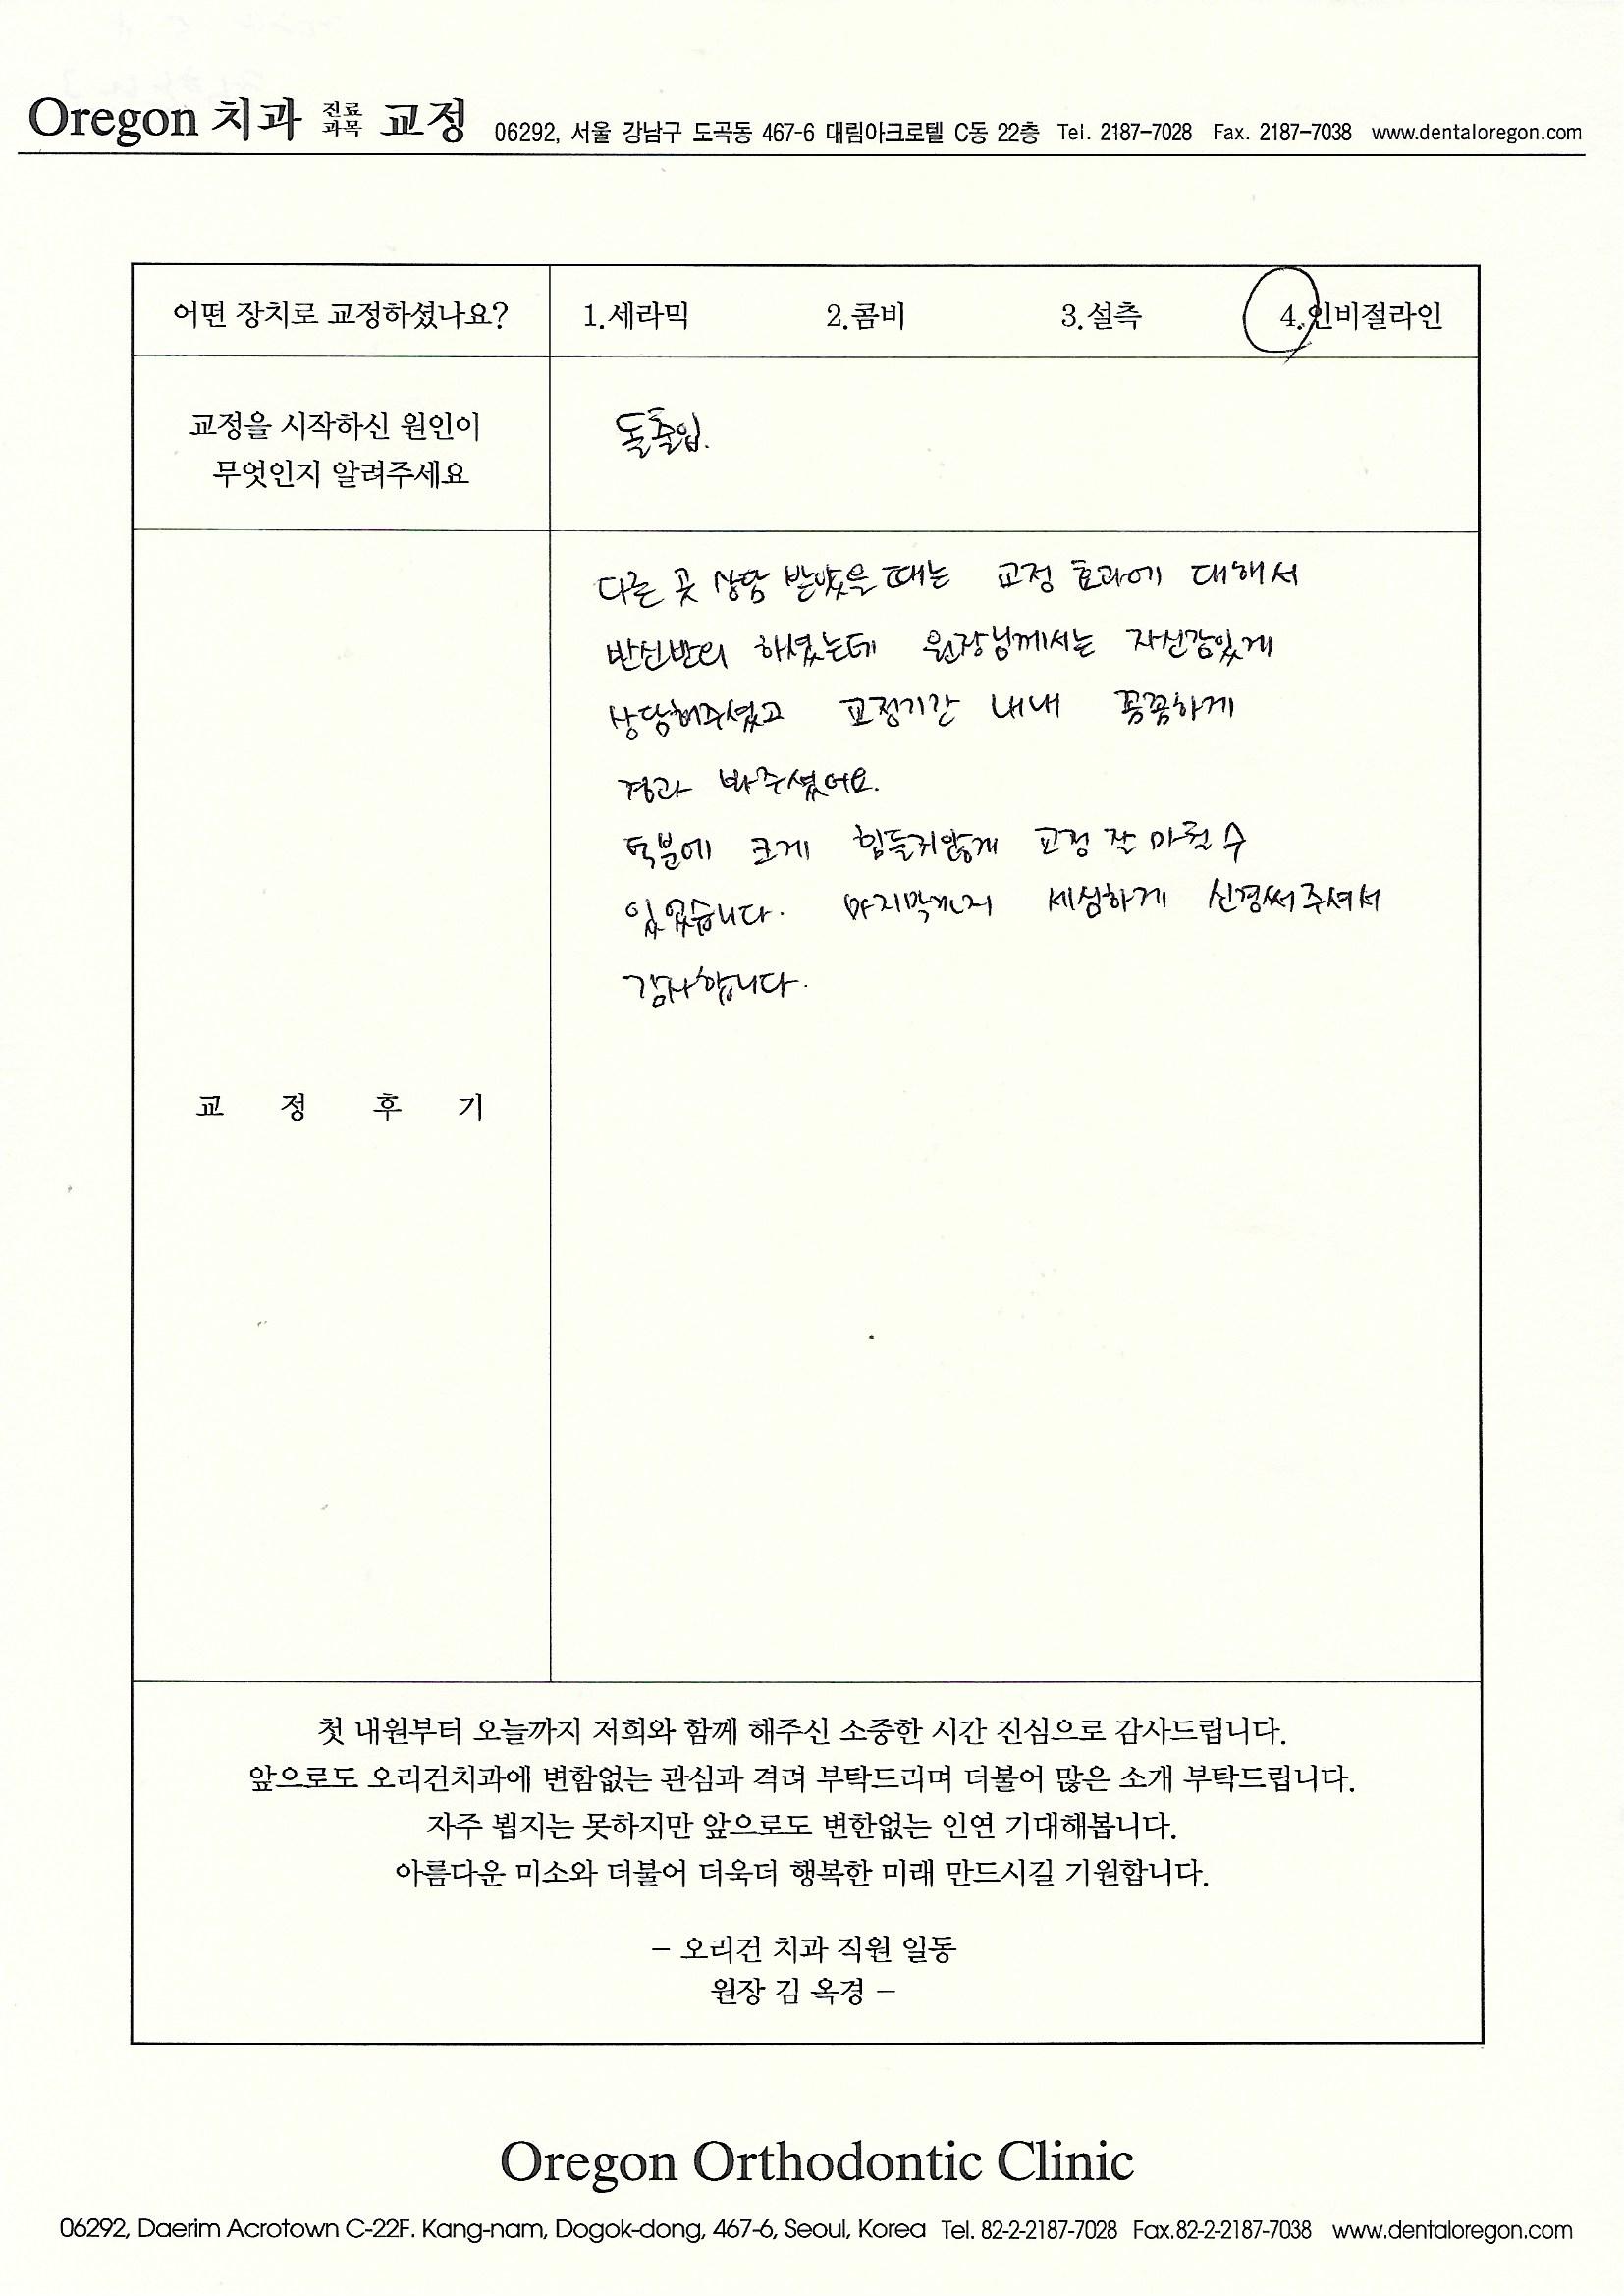 Oregon 치과 진료과목 교정 06292, 서울 강남구 도곡동 467-6 대림아크로텔 C동 22층 Tel. 2187-7028 Fax. 2187-7038 www.dentaloregon.com
어떤 장치로 교정하셨나요? 1.세라믹 2.콤비 3.설측 4.인비절라인
교정을 시작하신 원인이
무엇인지 알려주세요
돌출입.
다른 곳 상담 받았을 때는 교정 효과에 대해서
반신반의 하셨는데 원장님께서는 자신감있게
상담해주셨고 교정기간 내내 꼼꼼하게
경과 봐주셨어요.
덕분에 크게 힘들지않게 교정 잘 마칠 수
있었습니다. 마지막까지 세심하게 신경써주셔서
감사합니다.
교 정 후 기
첫 내원부터 오늘까지 저희와 함께 해주신 소중한 시간 진심으로 감사드립니다.
앞으로도 오리건치과에 변함없는 관심과 격려 부탁드리며 더불어 많은 소개 부탁드립니다.
자주 뵙지는 못하지만 앞으로도 변한없는 인연 기대해봅니다.
아름다운 미소와 더불어 더욱더 행복한 미래 만드시길 기원합니다.
– 오리건 치과 직원 일동
원장 김 옥경 –
Oregon Orthodontic Clinic
06292, Daerim Acrotown C-22F. Kang-nam, Dogok-dong, 467-6, Seoul, Korea Tel. 82-2-2187-7028 Fax.82-2-2187-7038 www.dentaloregon.com